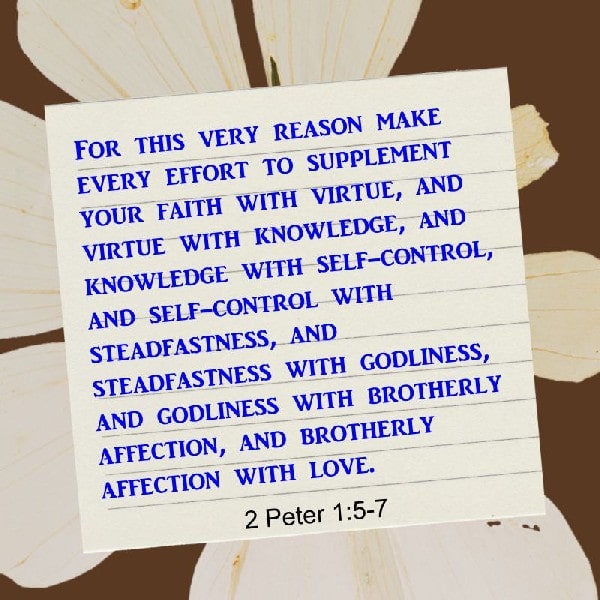 For this very reason make
every effort to supplement
your faith with virtue, and
virtue with knowledge, and
knowledge with self-control,
and self-control with
steadfastness, and
steadfastness with godliness,
and godliness with brotherly
affection, and brotherly
affection with love.
2 Peter 1:5-7